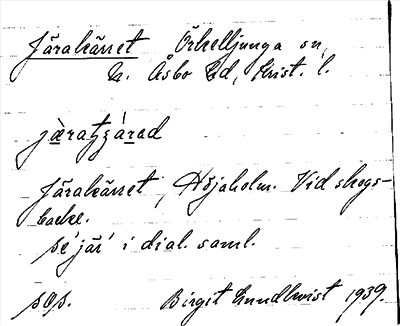 Järakärret, Örkelljunga sn,
N. Åsbo hd, Krist. l.
Järakärret, Höjaholm. Vid skogs-
backe.
se 'jär' i dial. saml.
sgs. Birgit Lundkvist 1939.